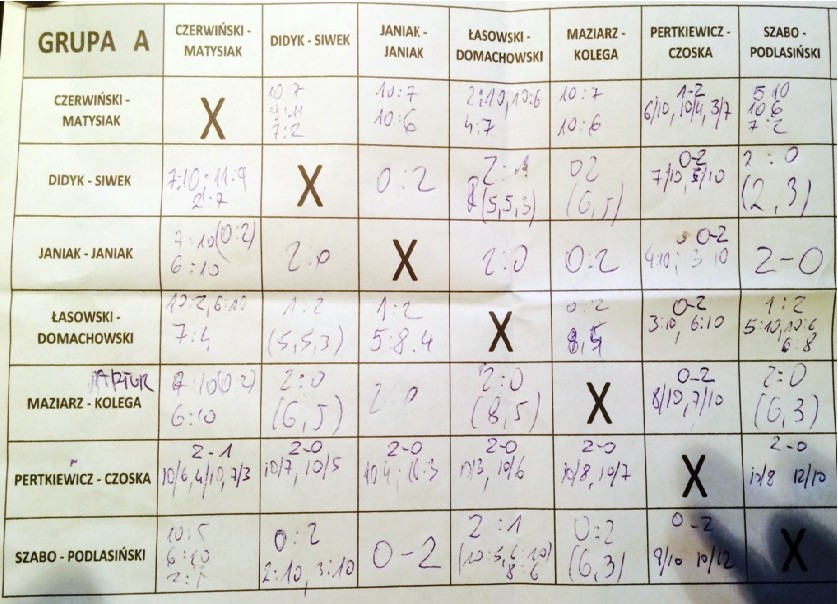 GRUPA A
CZERWIŃSKI - MATYSIAK
DIDYK - SIWEK
JANIAK - JANIAK
ŁASOWSKI - DOMACHOWSKI
MAZIARZ - KOLEGA
PERTKIEWICZ - CZOSKA
SZABO - PODLASIŃSKI
CZERWIŃSKI - MATYSIAK
X
10:7
10:6
2:10, 10:6
4:7
10:7
10:6
1-2
6/10, 10/4, 3/7
5 10
10 6
7:2
DIDYK - SIWEK
7:10 11:9
2:7
X
0:2
(5,5,3)
02
(6,5)
0-2
2:0
(2,3)
JANIAK - JANIAK
7:10 (0:2)
6:10
2:0
X
2:0
0:2
0-2
4:10, 3 10
2-0
ŁASOWSKI - DOMACHOWSKI
10:2, 6:10
7:4
1:2
(5,5,3)
1:2
5:8.4
X
0:2
0-2
3:10, 6:10
1:2
5:10, 10:6
6:8
ARTUR
MAZIARZ - KOLEGA
6:10
2:0
(6,5)
2:0
2:0
(8,5)
X
0-2
8/10, 7/10
2:0
(6,3)
PERTKIEWICZ - CZOSKA
2-1
10/6, 4/10, 7/3
2-0
10/7, 10/5
2-0
2-0
10/3, 10/6
2-0
10/8, 10/7
X
2-0
10/8 12/10
SZABO - PODLASIŃSKI
10:5
6:10
0:2
2:10, 3:10
0-2
2:1
(10:5, 6:10)
8:6
0:2
(6,3)
0-2
9/10 10/12
X